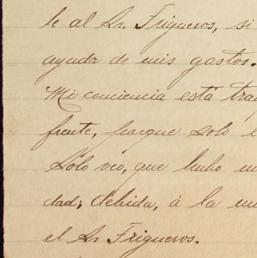 le al Sr. Frigueros, si
ayuda de mis gastos.
Mi conciencia está tra
frente, porque solo e
Sólo veo, que hubo un
dad, debida, á la en
el Sr Frigueros.